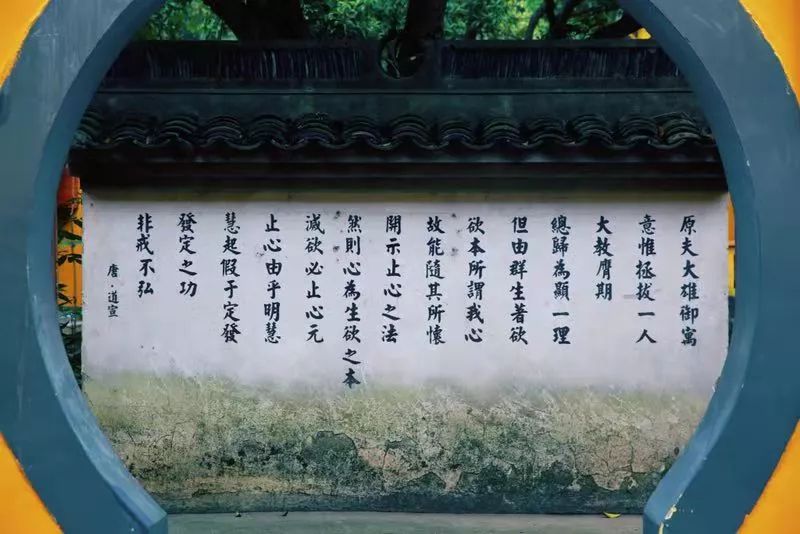 原夫大雄御寓
意惟拯拔一人
大教膺期
總歸為顯一理
但由群生著欲
欲本所謂我心
故能隨其所懷
開示止心之法
然則心為生欲之本
滅欲必止心元
止心由乎明慧
慧起假于定發
發定之功
非戒不弘
唐·道宣